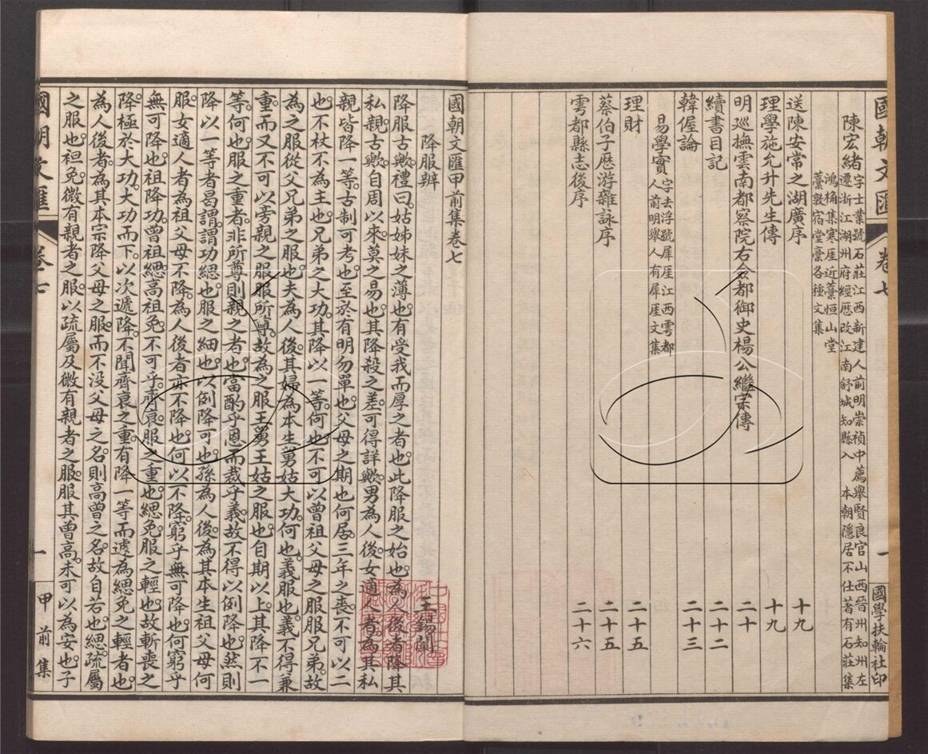 國朝文匯 卷七 一 國學扶輪社印
陳宏緒 字士業號石莊江西新建人前明崇禎中薦舉賢良官山西晉州知州左
遷浙江湖州府經歷改江南舒城知縣入 本朝隱居不仕著有石莊集
鴻桷集寒崖近藁恒山堂
藁敦宿堂藁各種文集
送陳安常之湖廣序 十九
理學施允升先生傳 十九
明巡撫雲南都察院右僉都御史楊公繼宗傳 二十
續書目記 二十二
韓偓論 二十三
易學實 字去浮號犀崖江西雩都
人前明舉人有犀崖文集
理財 二十五
蔡伯子歷游雜詠序 二十五
雩都縣志後序 二十六
國朝文匯甲前集卷七
降服辨
王錫闡
降服古歟禮曰姑姊妹之薄也有受我而厚之者也此降服之始也為人後者降其
私親古歟自周以來莫之易也其降殺之差可得詳歟男為人後女適人者為其私
親皆降一等古制可考也至於有明勿單也父母之期也何居三年之喪不可以二
也不杖不為主也兄弟之大功其降以一等何也不可以曾祖父母之服服兄弟故
為之服從父兄弟之服也夫為人後其婦為本生舅姑大功何也義服也義不得兼
重而又不可以旁親之服服所尊故為之服王舅王姑之服也自期以上其降不一
等何也服之重者非所尊則親之者也當酌乎恩而裁乎義故不得以例降也然則
降以一等者曷謂謂功緦也服之細也以例降可也孫為人後為其本生祖父母何
服女適人者為祖父母不降為人後者亦不降也何以不降窮乎無可降也何窮乎
無可降也祖降功曾祖緦高祖免不可乎齊衰服之重也緦免服之輕也故斬喪之
降極於大功大功而下以次遞降不聞齊衰之重有降一等而遽為緦免之輕者也
為人後者為其本宗降父母之服而不没父母之名則高曾之名故自若也緦疏屬
之服也袒免微有親者之服以疏屬及微有親者之服服其曾高未可以為安也子
國朝文匯 卷七 一 甲前集